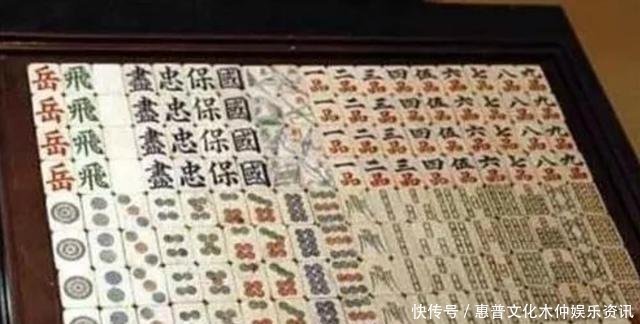 岳飛 盡忠保國 一二三四伍六七八九
品品品品品品品品品
岳飛 盡忠保國 一二三四伍六七八九
品品品品品品品品品
岳飛 盡忠保國 一二三四伍六七八九
品品品品品品品品品
岳飛 盡忠保國 一二三四伍六七八九
品品品品品品品品品
快传号 / 惠普文化木仲娱乐资讯